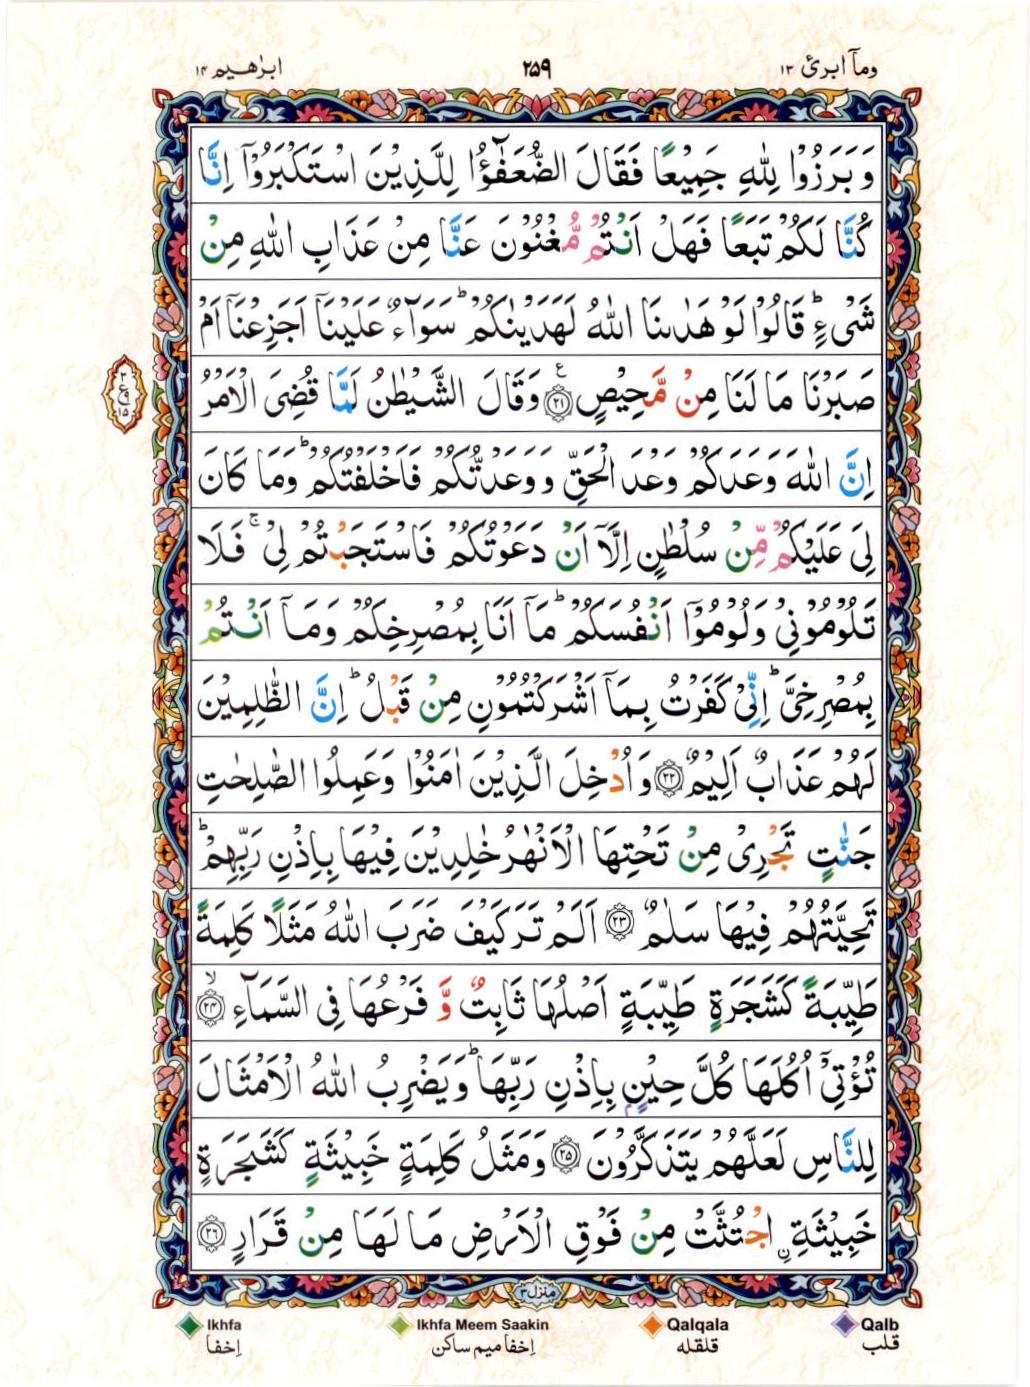 وماۤ ابرئ ۱۳
۲۵۹
ابرٰهیم ۱۴
وَبَرَزُوْا لِلّٰهِ جَمِیْعًا فَقَالَ الضُّعَفٰٓؤُا لِلَّذِیْنَ اسْتَكْبَرُوْۤا اِنَّا
كُنَّا لَكُمْ تَبَعًا فَهَلْ اَنْتُمْ مُّغْنُوْنَ عَنَّا مِنْ عَذَابِ اللّٰهِ مِنْ
شَیْءٍ ؕ قَالُوْا لَوْ هَدٰىنَا اللّٰهُ لَهَدَیْنٰكُمْ ؕ سَوَآءٌ عَلَیْنَاۤ اَجَزِعْنَاۤ اَمْ
صَبَرْنَا مَا لَنَا مِنْ مَّحِیْصٍ ۟ع ۲۱ وَقَالَ الشَّیْطٰنُ لَمَّا قُضِیَ الْاَمْرُ
اِنَّ اللّٰهَ وَعَدَكُمْ وَعْدَ الْحَقِّ وَوَعَدْتُّكُمْ فَاَخْلَفْتُكُمْ ؕ وَمَا كَانَ
لِیَ عَلَیْكُمْ مِّنْ سُلْطٰنٍ اِلَّاۤ اَنْ دَعَوْتُكُمْ فَاسْتَجَبْتُمْ لِیْ ۚ فَلَا
تَلُوْمُوْنِیْ وَلُوْمُوْۤا اَنْفُسَكُمْ ؕ مَاۤ اَنَا بِمُصْرِخِكُمْ وَمَاۤ اَنْتُمْ
بِمُصْرِخِیَّ ؕ اِنِّیْ كَفَرْتُ بِمَاۤ اَشْرَكْتُمُوْنِ مِنْ قَبْلُ ؕ اِنَّ الظّٰلِمِیْنَ
لَهُمْ عَذَابٌ اَلِیْمٌ ۲۲ وَاُدْخِلَ الَّذِیْنَ اٰمَنُوْا وَعَمِلُوا الصّٰلِحٰتِ
جَنّٰتٍ تَجْرِیْ مِنْ تَحْتِهَا الْاَنْهٰرُ خٰلِدِیْنَ فِیْهَا بِاِذْنِ رَبِّهِمْ ؕ
تَحِیَّتُهُمْ فِیْهَا سَلٰمٌ ۲۳ اَلَمْ تَرَ كَیْفَ ضَرَبَ اللّٰهُ مَثَلًا كَلِمَةً
طَیِّبَةً كَشَجَرَةٍ طَیِّبَةٍ اَصْلُهَا ثَابِتٌ وَّ فَرْعُهَا فِی السَّمَآءِ ۙ ۲۴
تُؤْتِیْۤ اُكُلَهَا كُلَّ حِیْنٍۭ بِاِذْنِ رَبِّهَا ؕ وَیَضْرِبُ اللّٰهُ الْاَمْثَالَ
لِلنَّاسِ لَعَلَّهُمْ یَتَذَكَّرُوْنَ ۲۵ وَمَثَلُ كَلِمَةٍ خَبِیْثَةٍ كَشَجَرَةٍ
خَبِیْثَةِ ِ۟ن اجْتُثَّتْ مِنْ فَوْقِ الْاَرْضِ مَا لَهَا مِنْ قَرَارٍ ۲۶
۳
ع
۱۵
منزل ۳
Ikhfa
Ikhfa Meem Saakin
Qalqala
Qalb
اِخفا
اِخفا میم ساکن
قلقلہ
قلب